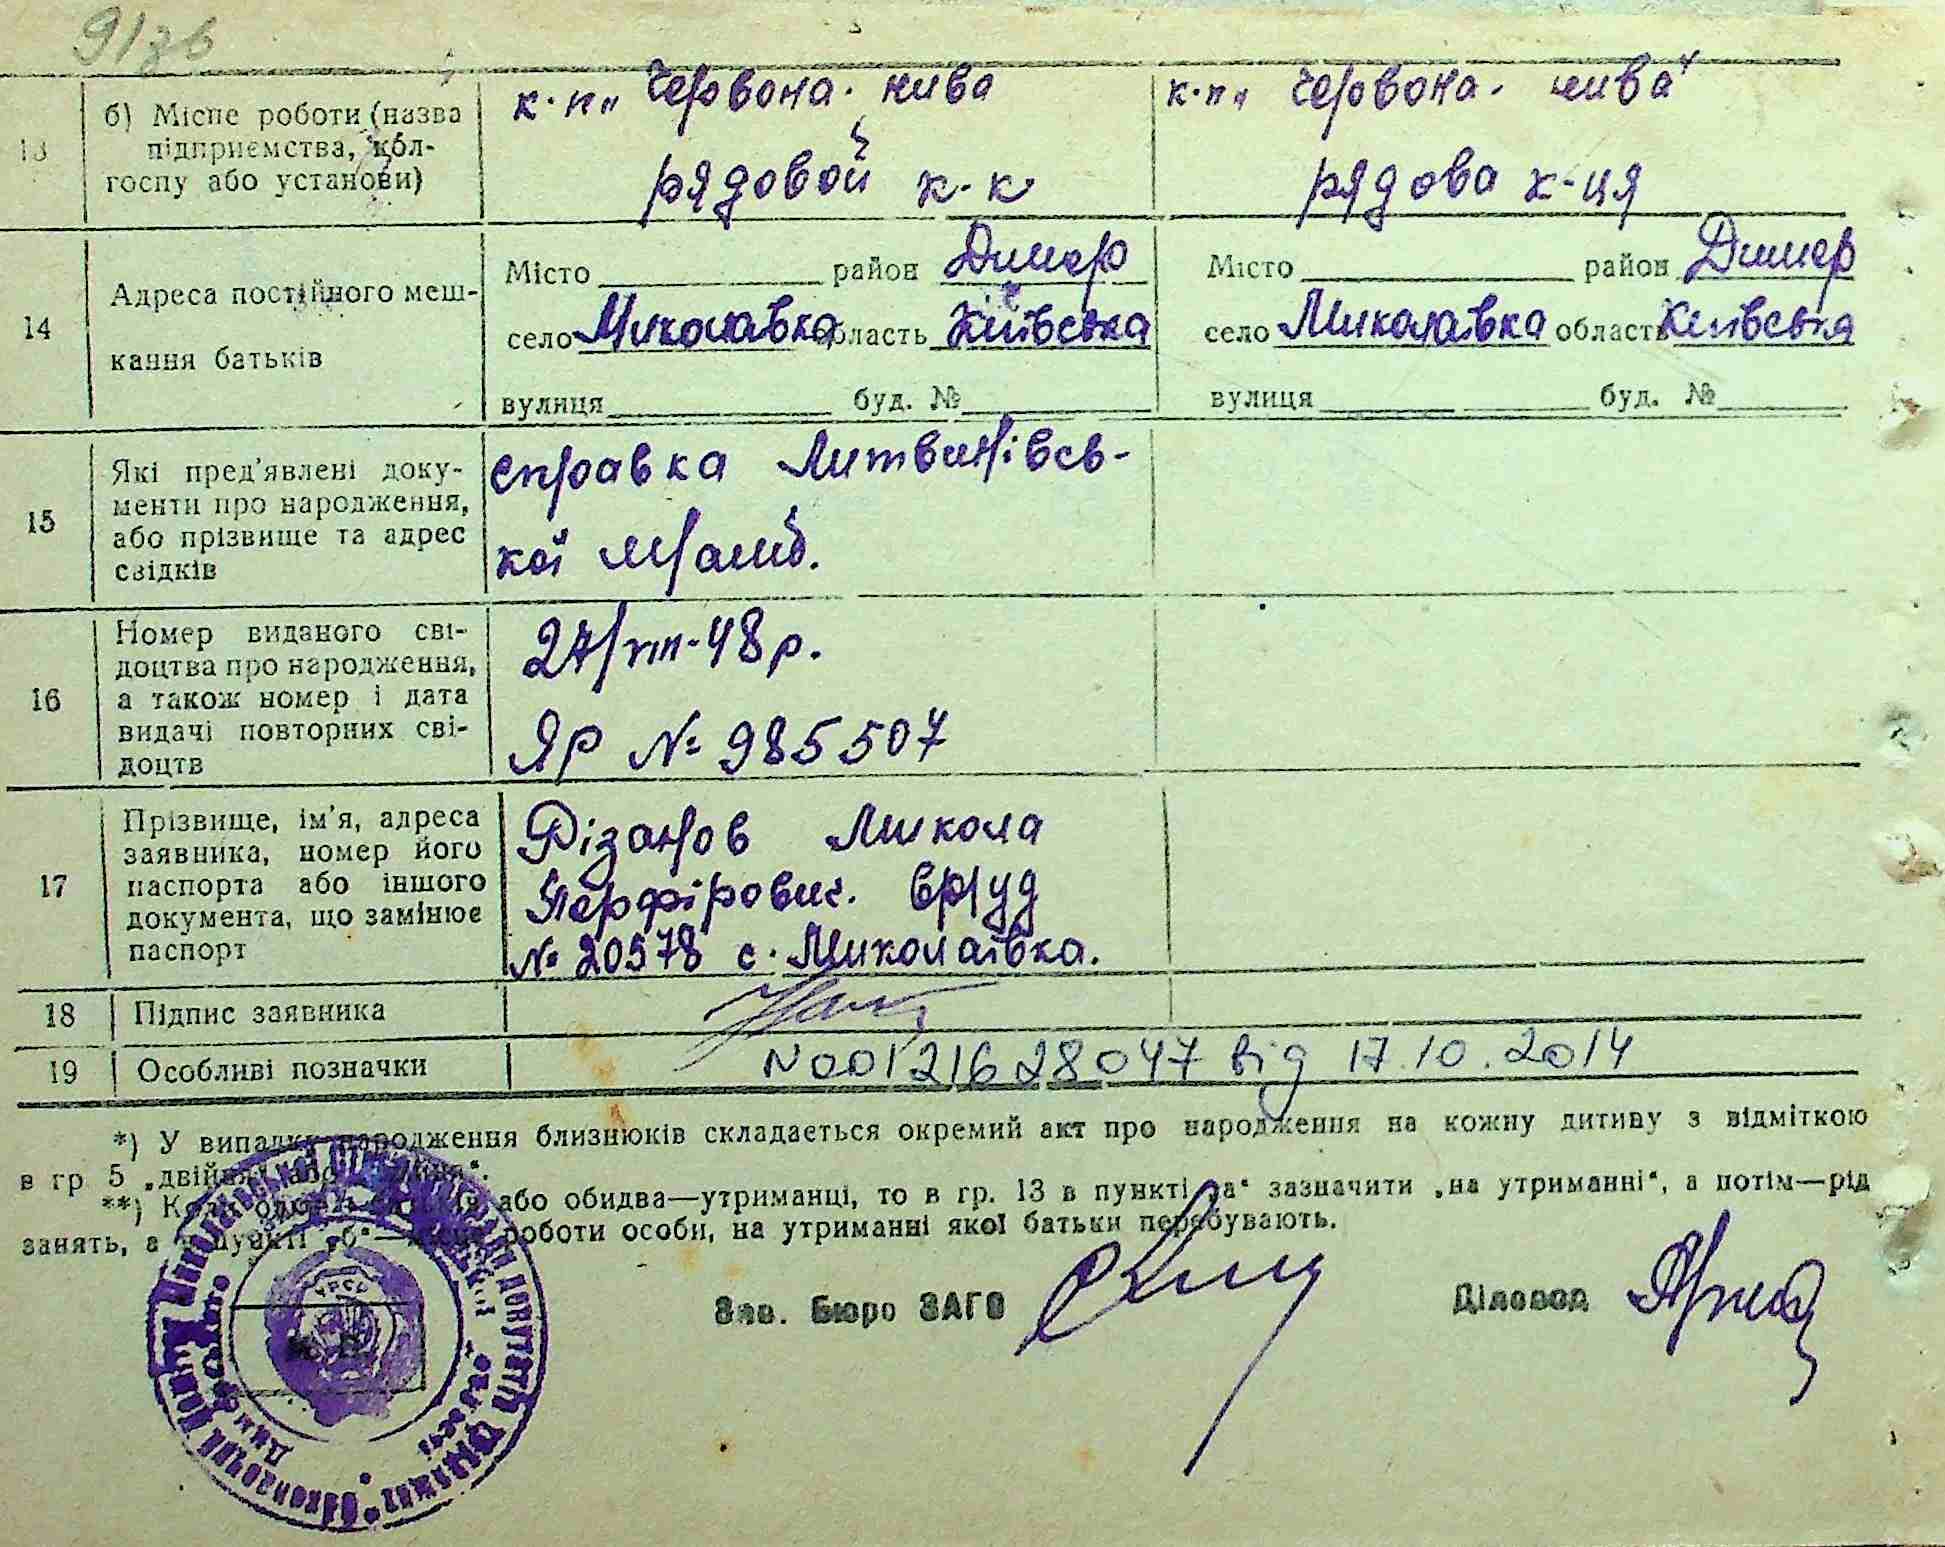 91зв
13
б) Місце роботи (назва
підприємства, кол-
госпу або установи)
к-п „Червона нива
рядовой к-к
к-п „Червона нива"
рядова к-ця
14
Адреса постійного меш-
кання батьків
Місто район Димер
село Миколаївка область Київська
вулиця буд. №
Місто район Димер
село Миколаївка область Київська
вулиця буд. №
15
Які пред'явлені доку-
менти про народження,
або прізвище та адрес
свідків
справка Литвинівсь-
кої
16
Номер виданого сві-
доцтва про народження,
а також номер і дата
видачі повторних сві-
доцтв
27/VIII-48 р.
ЯР № 985507
17
Прізвище, ім'я, адреса
заявника, номер його
паспорта або іншого
документа, що замінює
паспорт
Різанов Микола
Перфірович.
№ 20578 с. Миколаївка.
18
Підпис заявника
19
Особливі позначки
N00121628047 від 17.10.2014
*) У випадку народження близнюків складається окремий акт про народження на кожну дитину з відміткою
в гр 5 „двійня" або
**) Коли або обидва—утриманці, то в гр. 13 в пункті „а" зазначити „на утриманні", а потім—рід
занять, а в пункті „б"— роботи особи, на утриманні якої батьки перебувають.
Зав. Бюро ЗАГС
Діловод